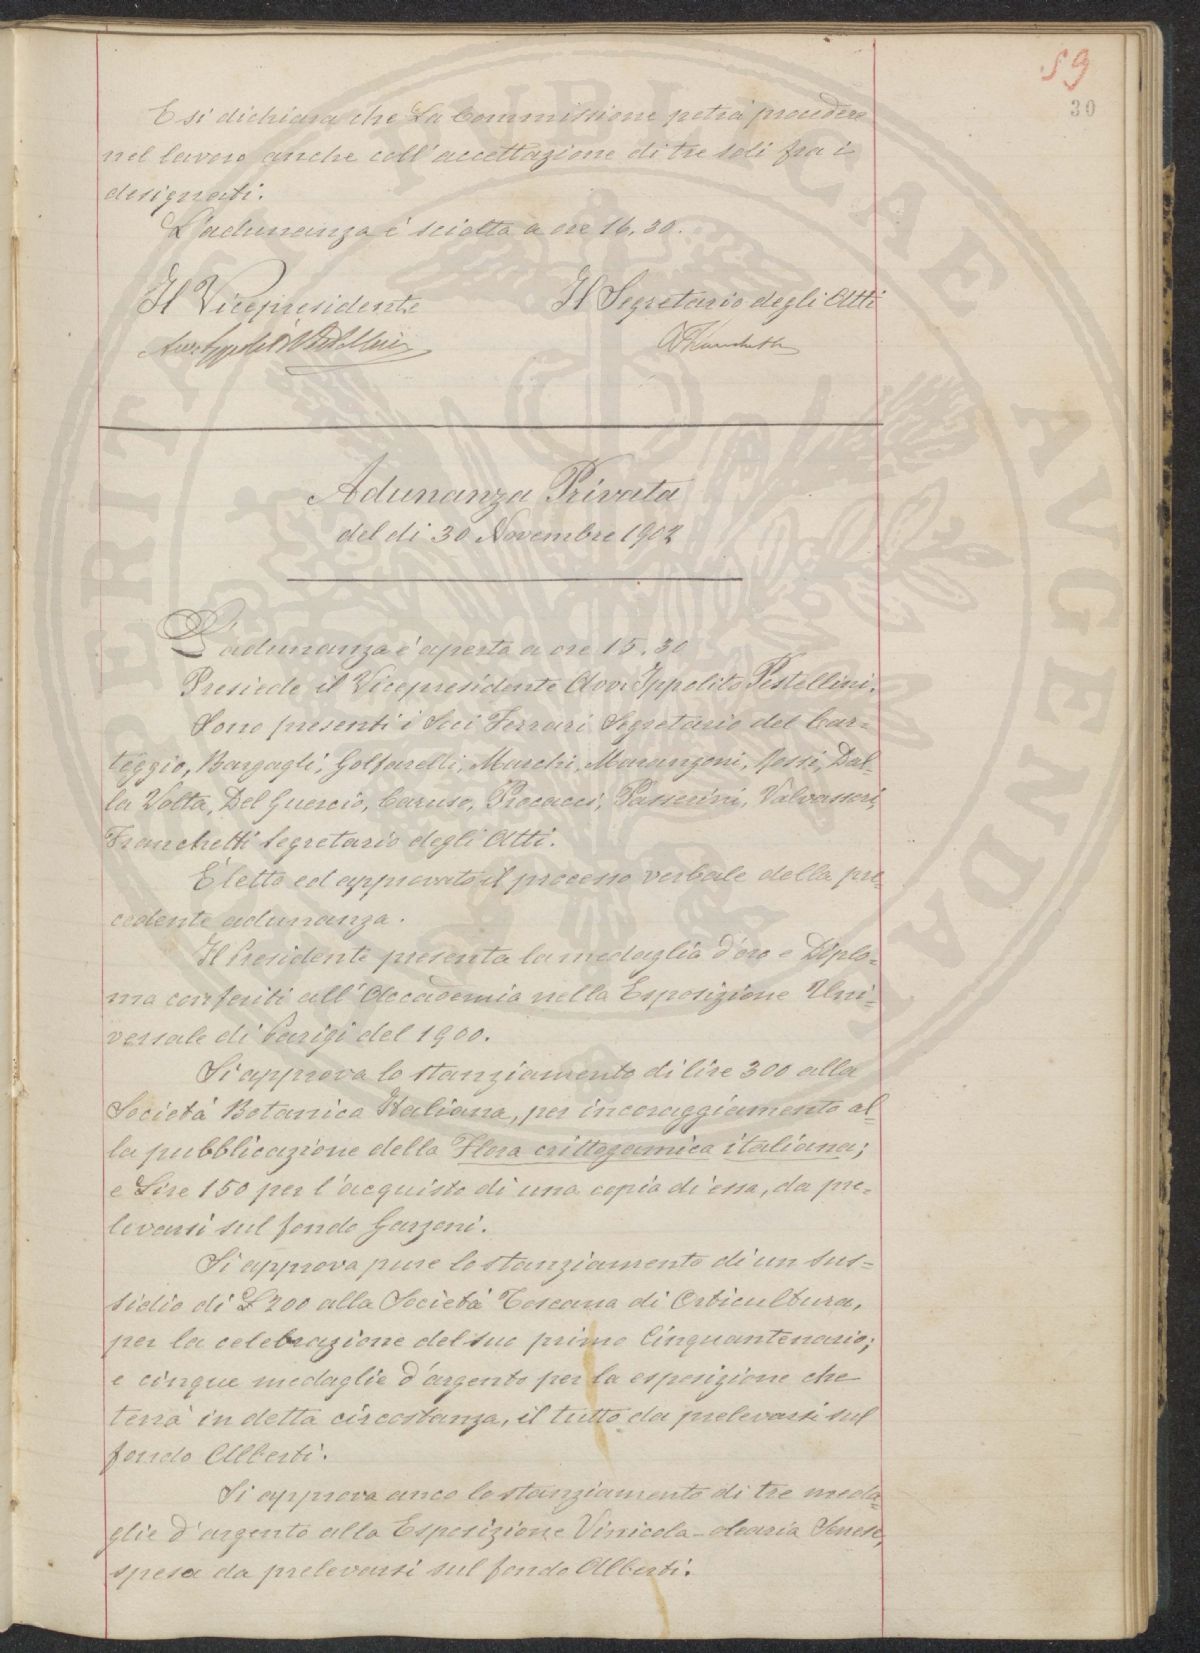 59
30
E si dichiara che La Commissione potrà procedere
nel lavoro anche coll'accettazione di tre soli fra i
designati.
L'adunanza è sciolta a ore 16,30.
Il Vicepresidente
Il Segretario degli Atti
Adunanza Privata
del dì 30 Novembre 1902
L'adunanza è aperta a ore 15.30
Presiede il Vicepresidente Avv. Ippolito Pestellini.
Sono presenti i Soci Ferrari Segretario del Car=
teggio, Bargagli, Golfarelli, Marchi, Marangoni, Rossi, Dal=
la Volta, Del Guercio, Caruso, Procacci, Passerini, Valvassori,
Franchetti Segretario degli Atti.
È letto ed approvato il processo verbale della pre=
cedente adunanza.
Il Presidente presenta la medaglia d'oro e Diplo=
ma conferiti all'Accademia nella Esposizione Uni=
versale di Parigi del 1900.
Si approva lo stanziamento di lire 300 alla
Società Botanica Italiana, per incoraggiamento al=
la pubblicazione della Flora crittogamica italiana;
e Lire 150 per l'acquisto di una copia di essa, da pre=
levarsi sul fondo Garzoni.
Si approva pure lo stanziamento di un sus=
sidio di £ 200 alla Società Toscana di Orticultura,
per la celebrazione del suo primo Cinquantenario;
e cinque medaglie d'argento per la esposizione che
terrà in detta circostanza, il tutto da prelevarsi sul
fondo Alberti.
Si approva anco lo stanziamento di tre meda=
glie d'argento alla Esposizione Vinicola-olearia Senese,
spesa da prelevarsi sul fondo Alberti.